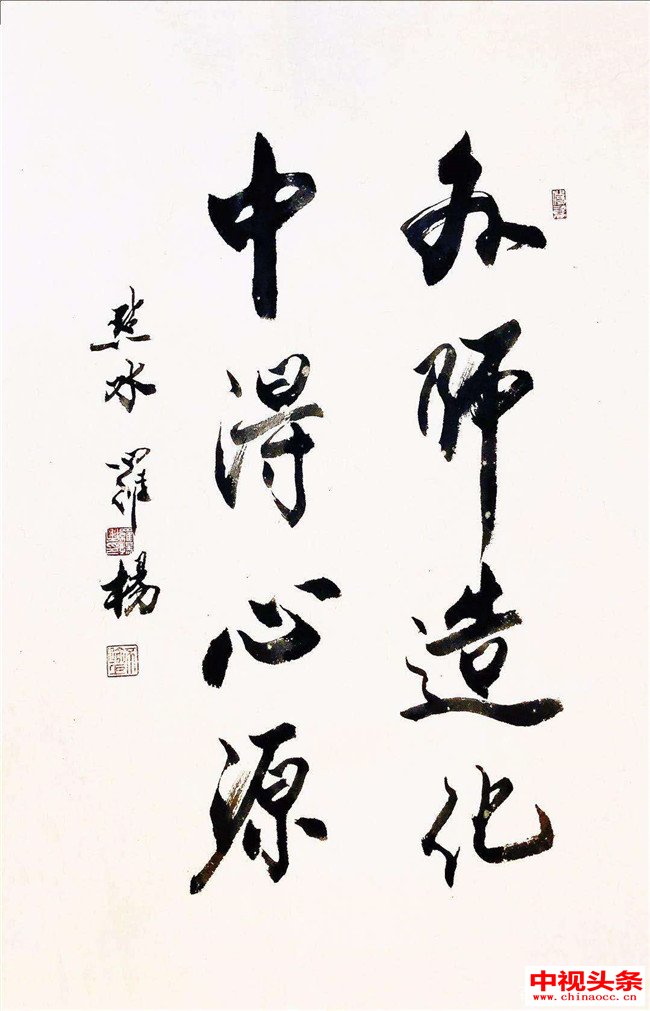 外師造化
中得心源
水 羅楊
中视头条
www.chinaocc.cn